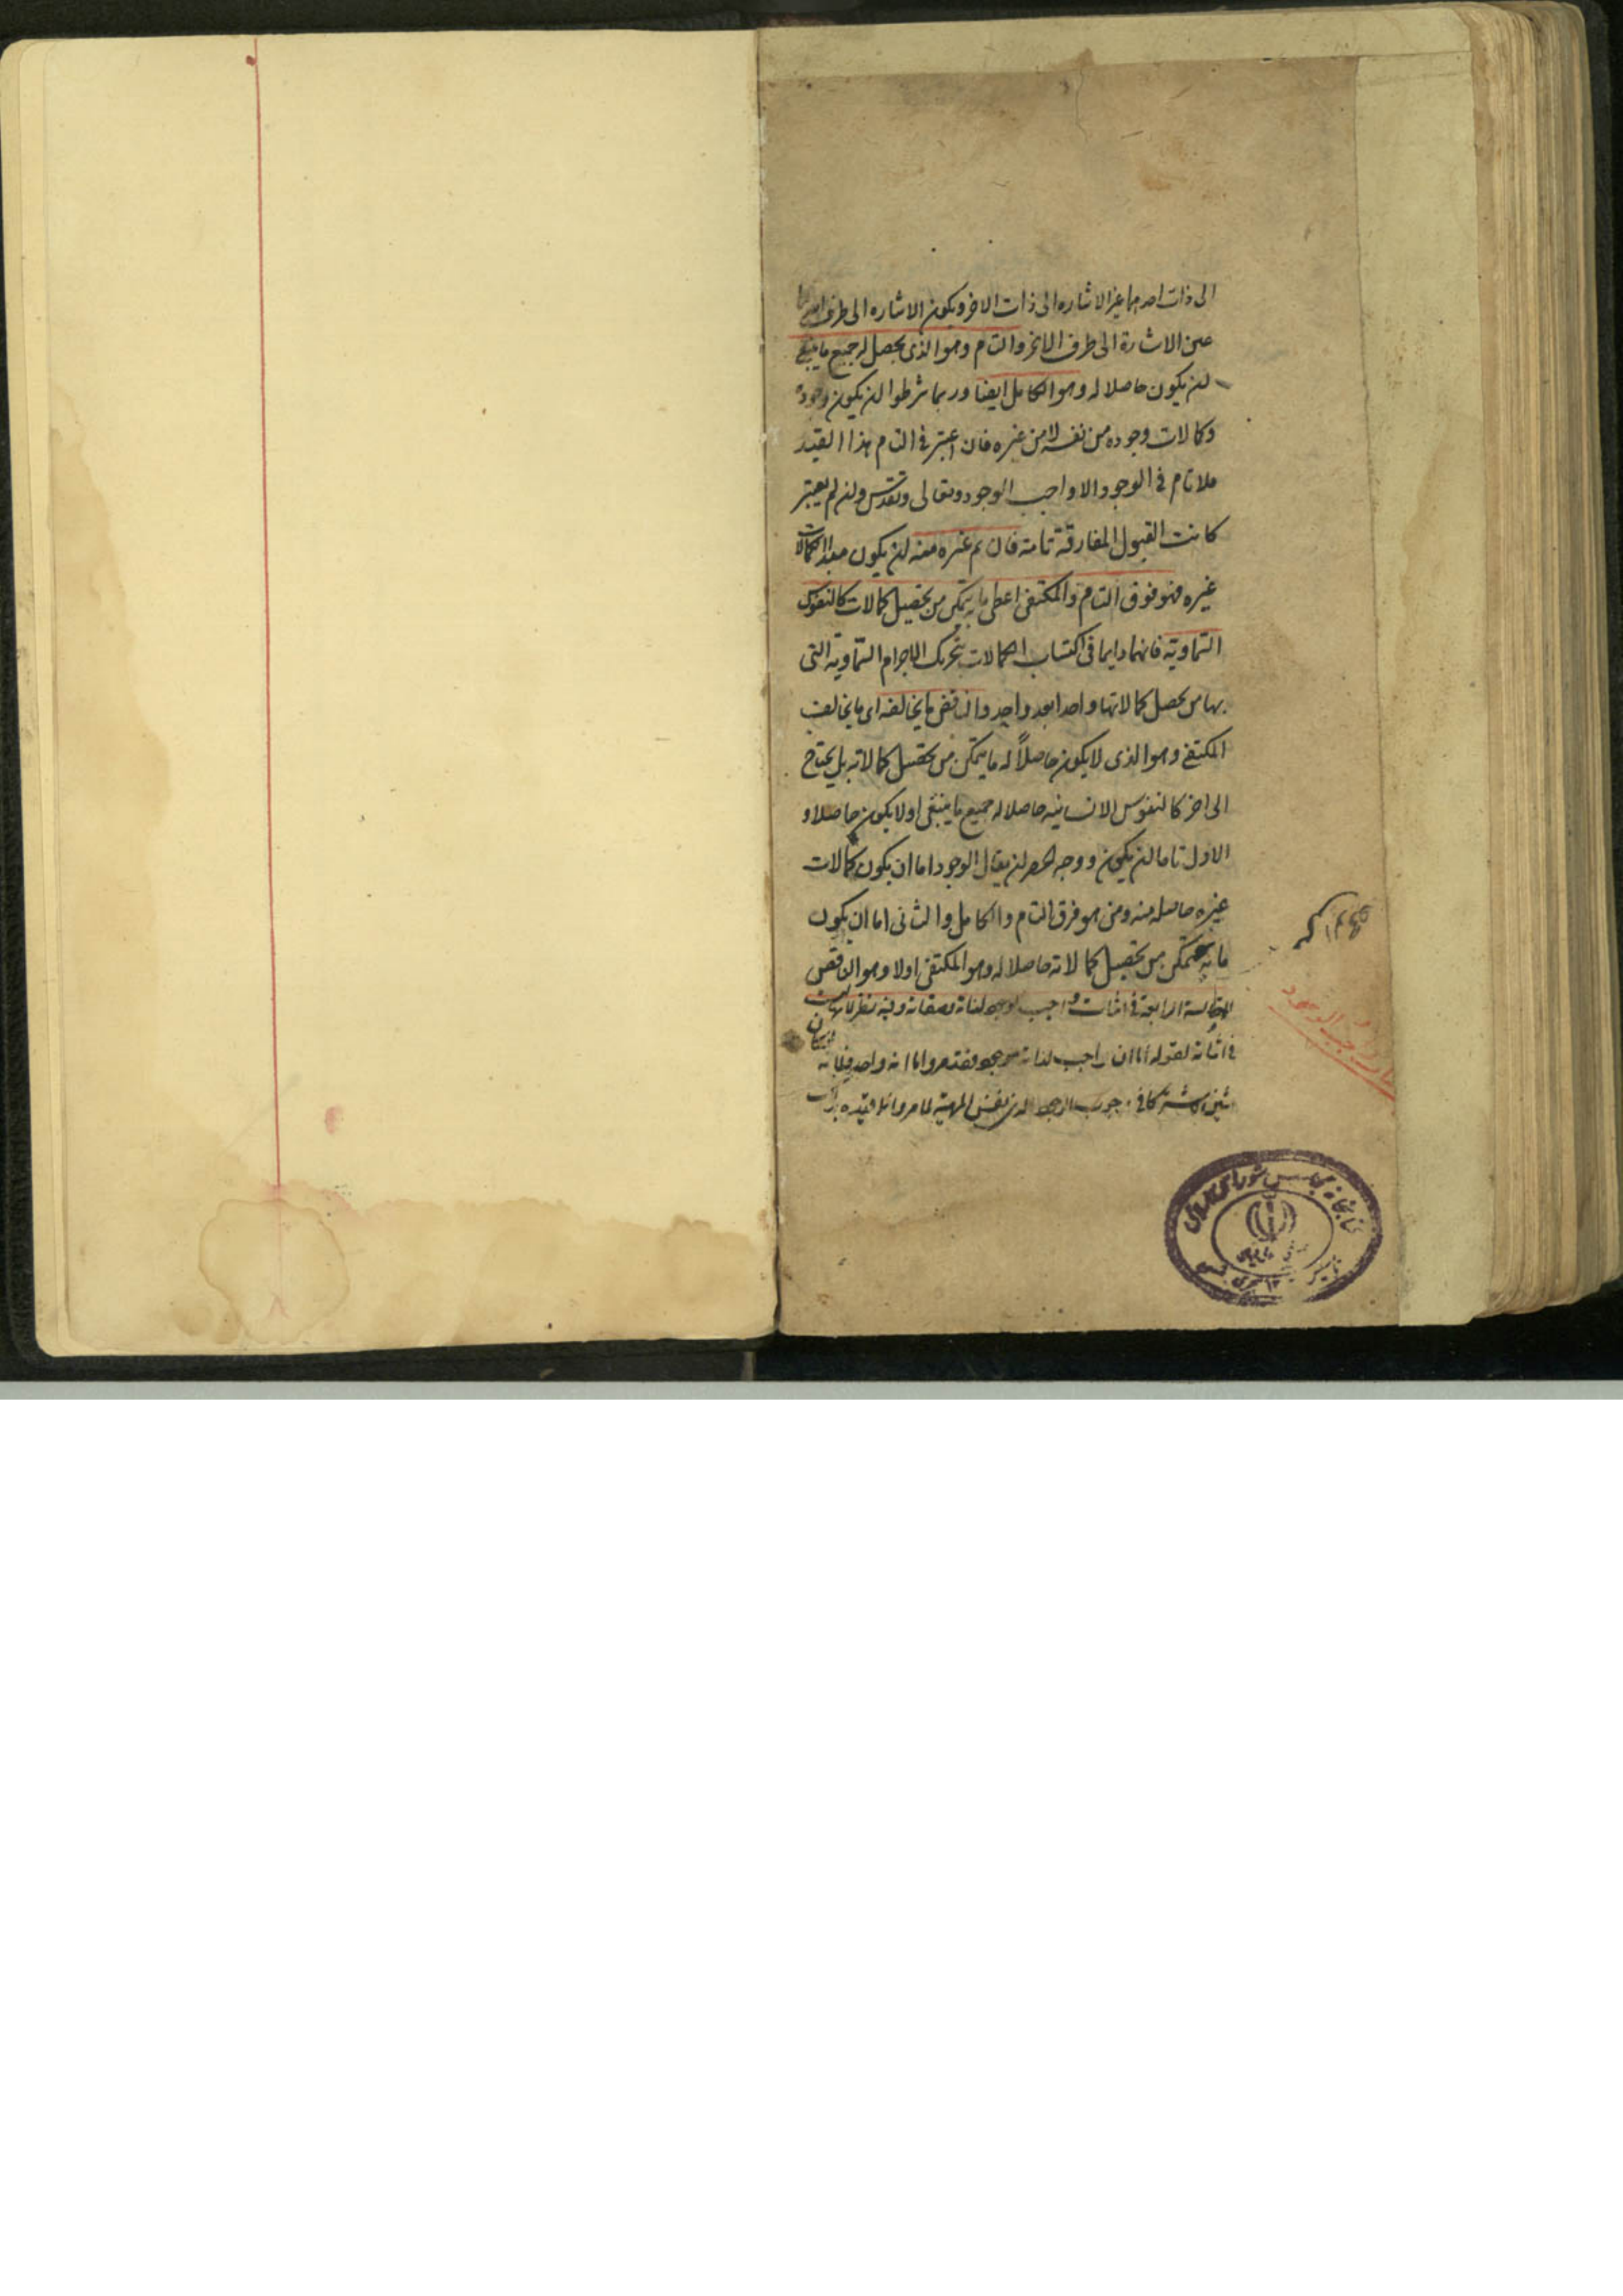 الى ذات احدهما غير الاشاره الى ذات الاخر ويكون الاشاره الى طرف احدهما
عين الاشارة الى طرف الاخر والتام وهو الذى يحصل له جميع ما ينبغى
ان يكون حاصلا له وهو الكامل ايضا وربما شرطوا ان يكون وجوده
وكالات وجوده من نفسه لا من غيره فان اعتبر فى التام هذا القيد
فلا تام فى الوجود الا واجب الوجود وتعالى وتقدس وان لم يعتبر
كانت القبول المفارقة تامه فان تم غيره منه ان يكون مبدا لكمالات
غيره فهو فوق التام والمكتفى اعطى ما به يتمكن من تحصيل كمالات كالنفوس
السماوية فانها دايما فى اكتساب الكمالات بتحريك الاجرام السماوية التى
بها من يحصل كمالاتها واحدا بعد واحد والناقص ما يخالفه اى ما يخالف
المكتفى وهو الذى لا يكون حاصلاً له ما يتمكن من تحصيل كمالاته بل يحتاج
الى اخر كالنفوس الانسانيه حاصلا له جميع ما ينبغى او لا يكون حاصلا و
الاول تاما ان يكون ووجه الحصر ان يقال الوجود اما ان يكون كمالات
غيره حاصله منه ومن هو فوق التام والكامل والثانى اما ان يكون
ما به يتمكن من تحصيل كمالاته حاصلا له وهو المكتفى اولا وهو الناقص
المقالة الرابعة فى اثبات واجب الوجود لذاته وصفاته وفيه نظر لانها ليست
فى اثباته لقوله اما ان واجب لذاته موجود فقد مر واما انه واحد فلانه
شيئين اشتركا فى وجوب الوجود الذى نفس المهية لما مر وامكن تقيده بذات
واجب الوجود
كتابخانه مجلس شوراى اسلامى